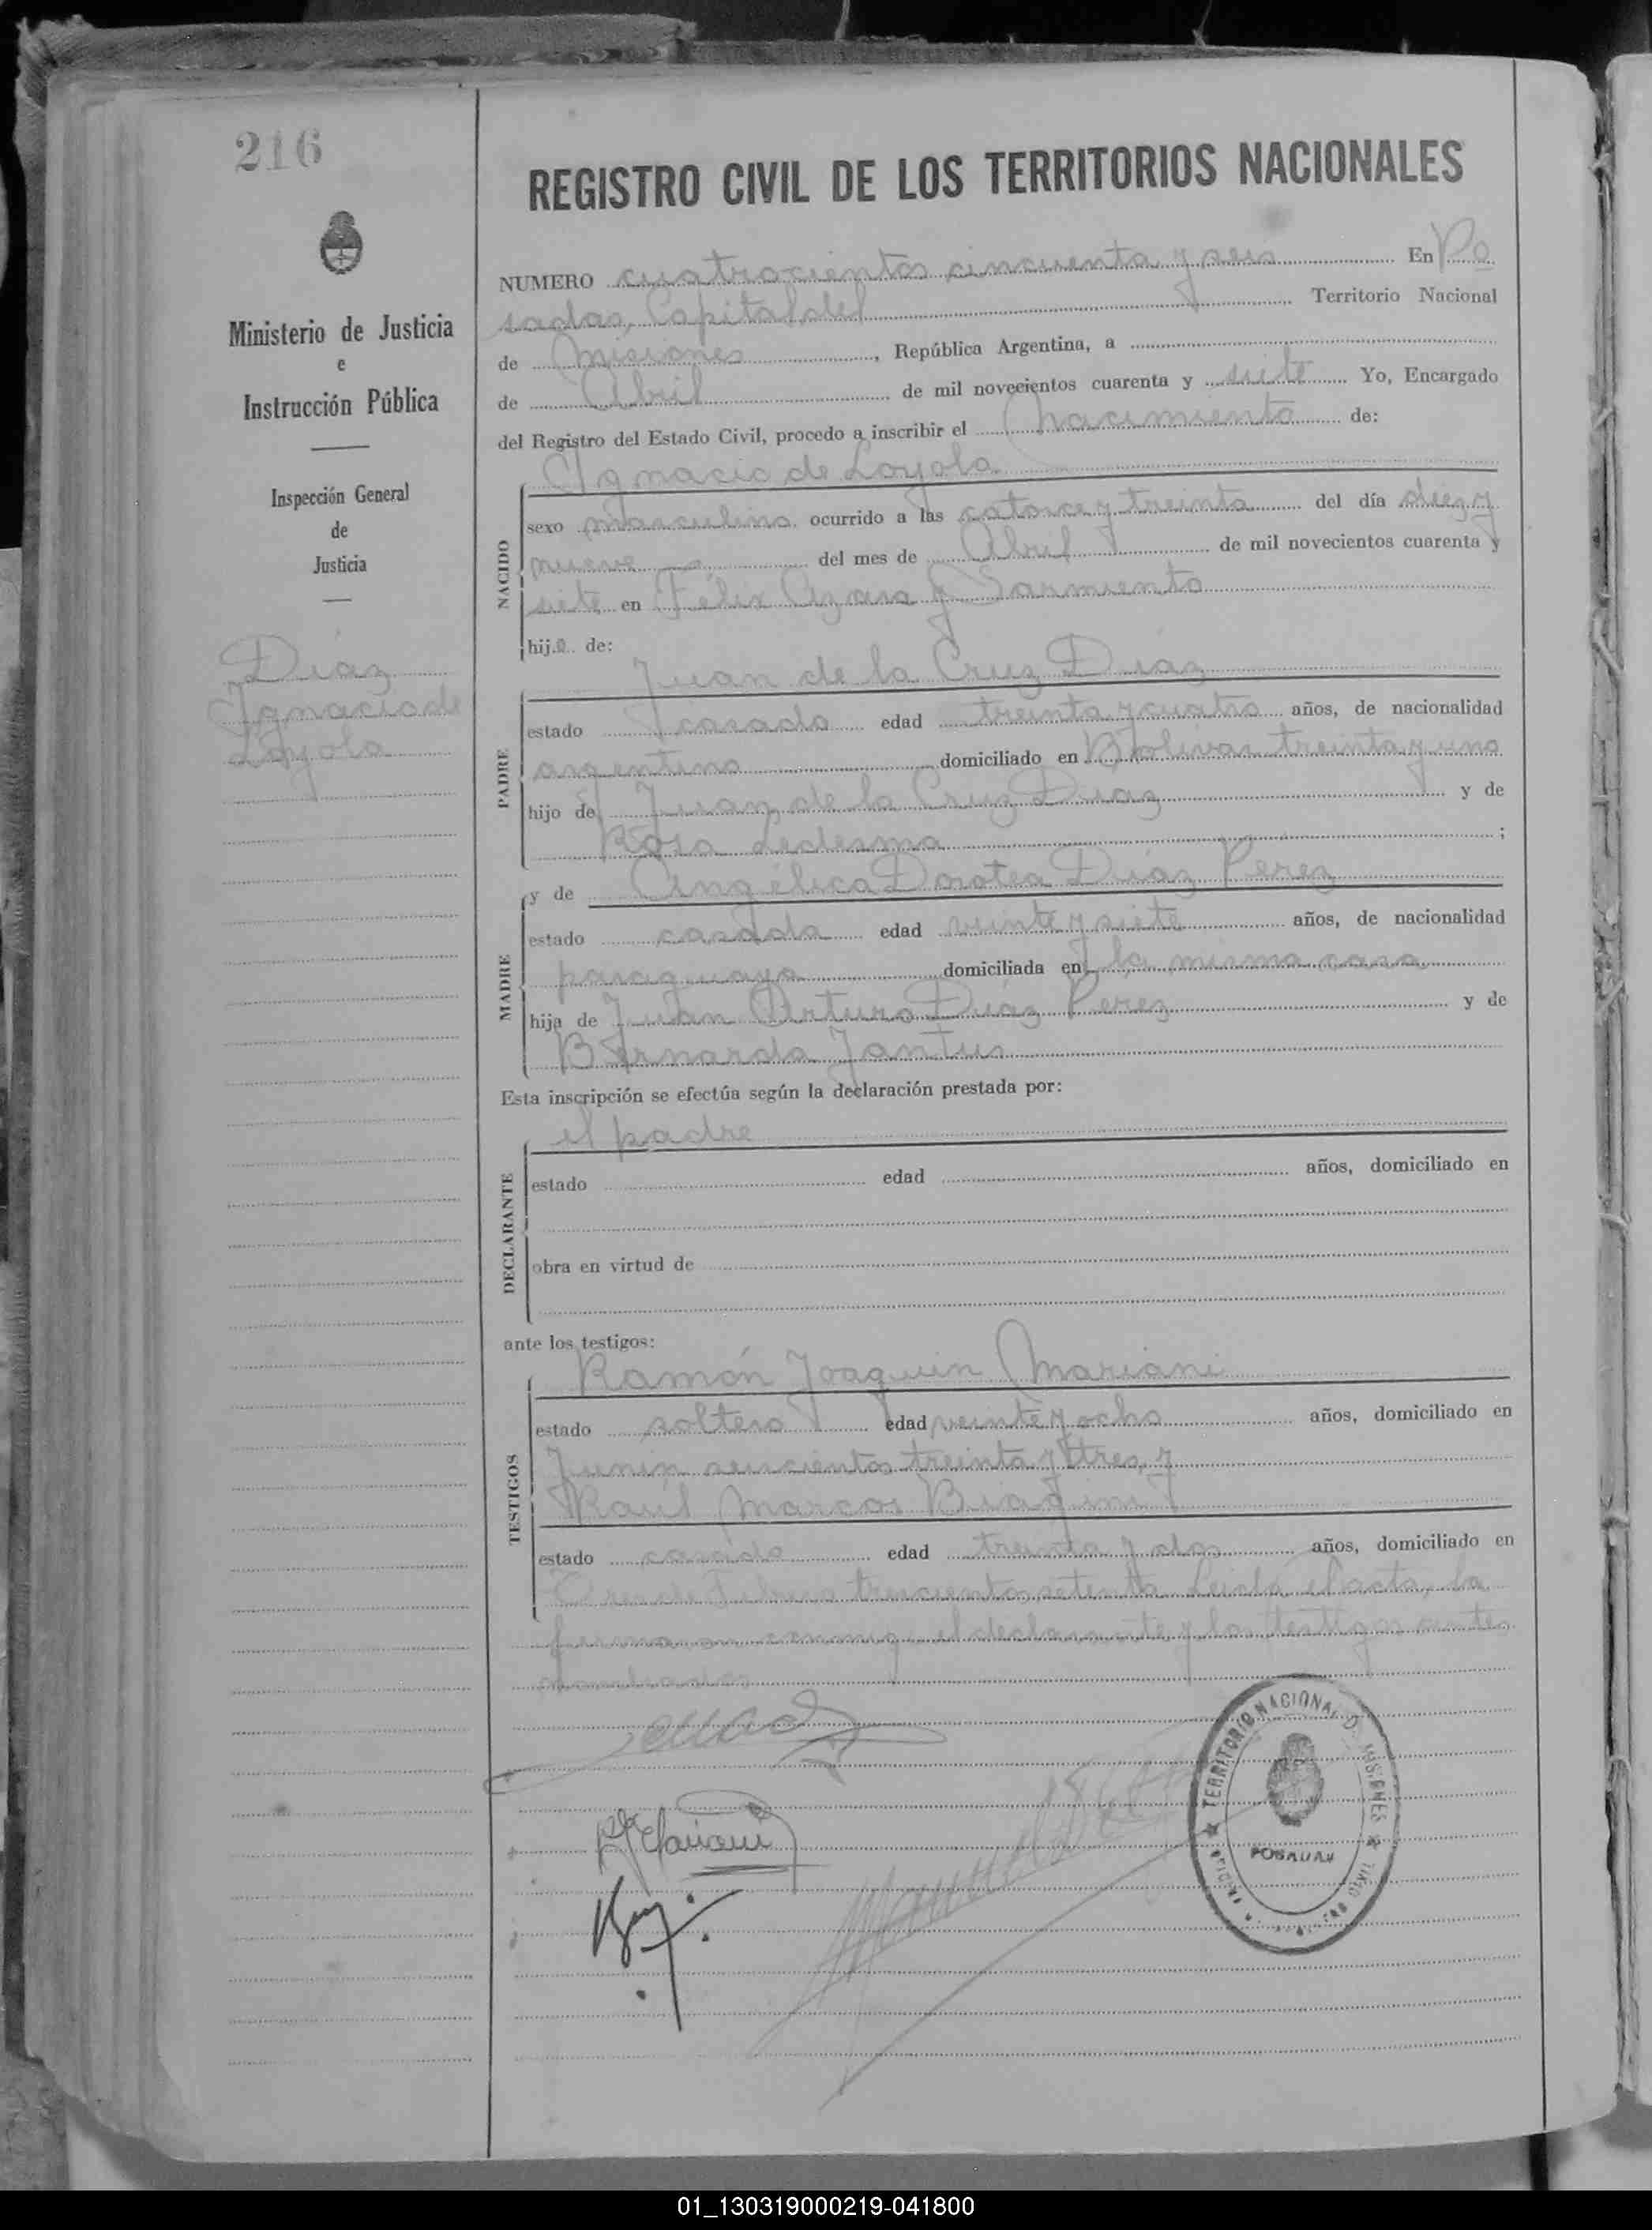 216
Ministerio de Justicia
e
Instrucción Pública
Inspección General
de
Justicia
Díaz
Ignacio de
Loyola
REGISTRO CIVIL DE LOS TERRITORIOS NACIONALES
NUMERO cuatrocientos cincuenta y seis En Po
sadas, Capital del Territorio Nacional
de Misiones, República Argentina, a
de Abril de mil novecientos cuarenta y siete Yo, Encargado
del Registro del Estado Civil, procedo a inscribir el nacimiento de:
Ignacio de Loyola
NACIDO
sexo masculino ocurrido a las catorce y treinta del día diez y
nueve del mes de Abril de mil novecientos cuarenta y
siete en Félix Azara y Sarmiento
hijo de:
Juan de la Cruz Díaz
PADRE
estado casado edad treinta y cuatro años, de nacionalidad
argentino domiciliado en Bolívar treinta y uno
hijo de Juan de la Cruz Díaz y de
Rosa Ledesma ;
y de Angélica Dorotea Díaz Perez
MADRE
estado casada edad veinte y siete años, de nacionalidad
paraguaya domiciliada en la misma casa
hija de Juan Arturo Díaz Perez y de
Bernarda Jantus
Esta inscripción se efectúa según la declaración prestada por:
el padre
DECLARANTE
estado edad años, domiciliado en
obra en virtud de
ante los testigos:
Ramón Joaquin Mariani
TESTIGOS
estado soltero edad veinte y ocho años, domiciliado en
Junin seiscientos treinta y tres, y
Raúl Marcos Biagini
estado casado edad treinta y dos años, domiciliado en
Tres de Febrero trescientos setenta Leida el acta, la
firmaron conmigo el declarante y los testigos antes
nombrados
TERRITORIO NACIONAL D. MISIONES
POSADAS
01_130319000219-041800